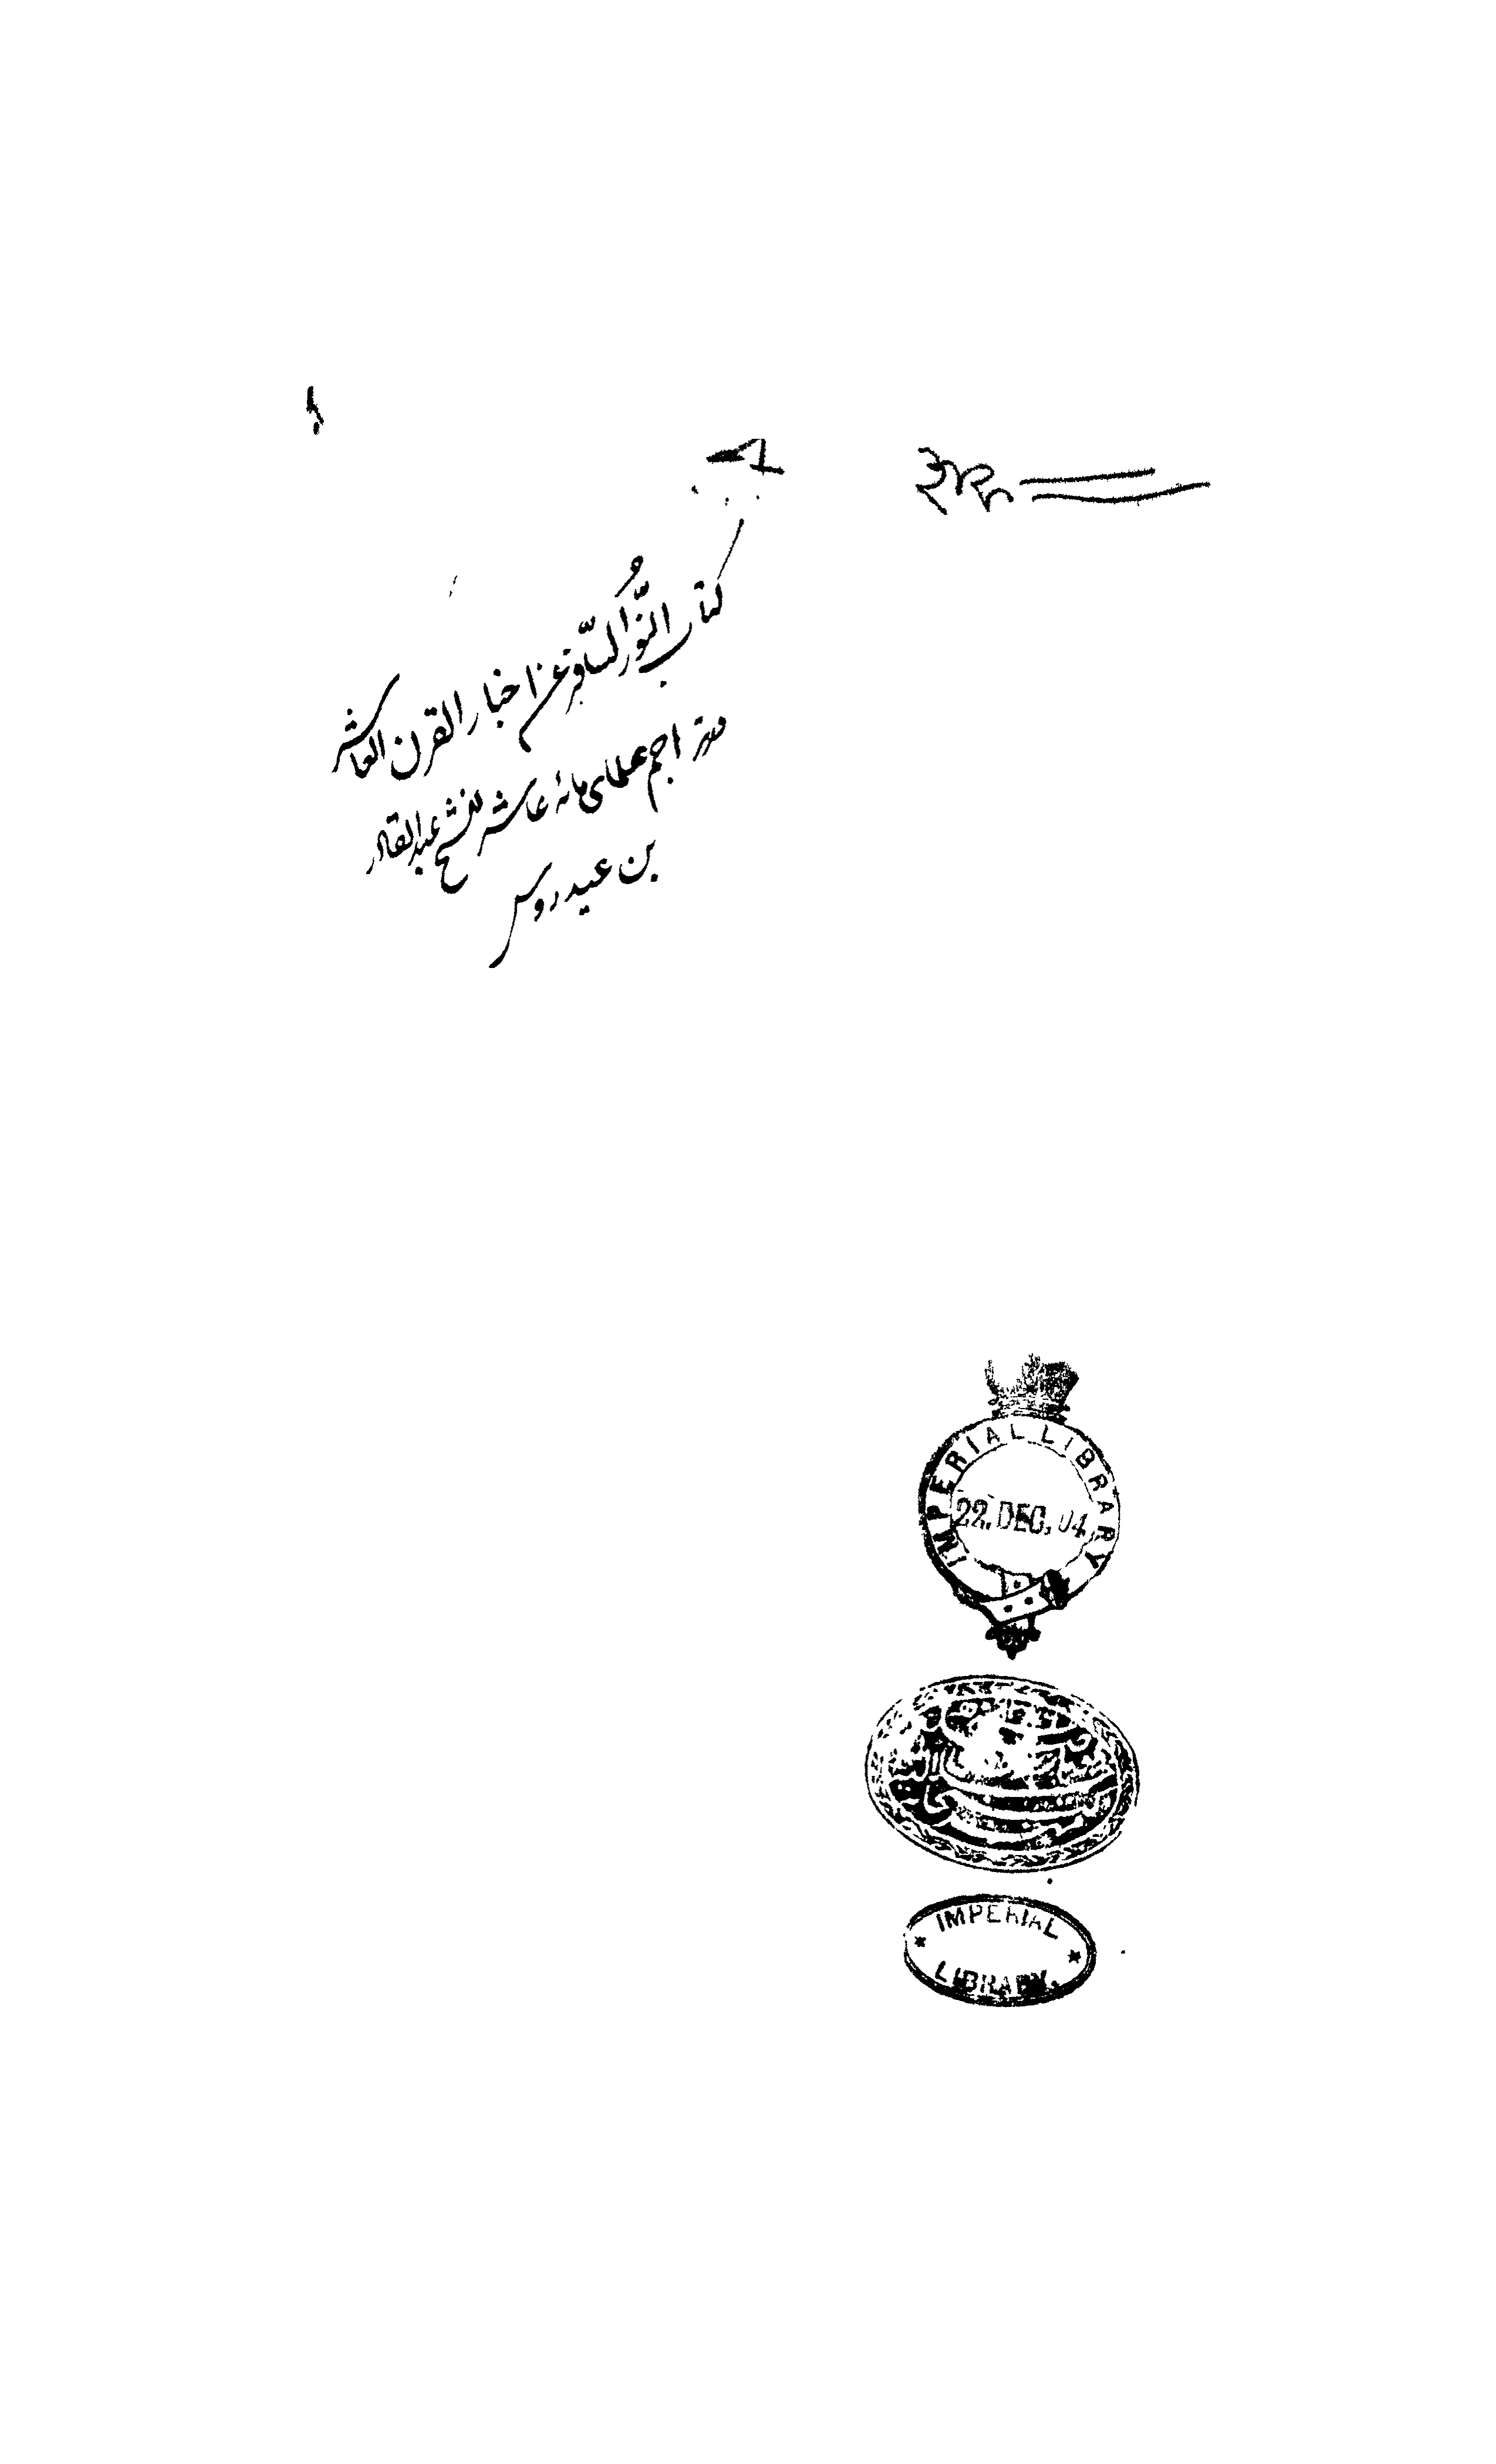 كتاب النُّور السَّافر عن اخبار القرن العاشر
در تراجم علمای مائۀ عاشر للشيخ عبد القادر
بن عيدروس
IMPERIAL LIBRARY
22. DEC. 04
IMPERIAL
LIBRARY.